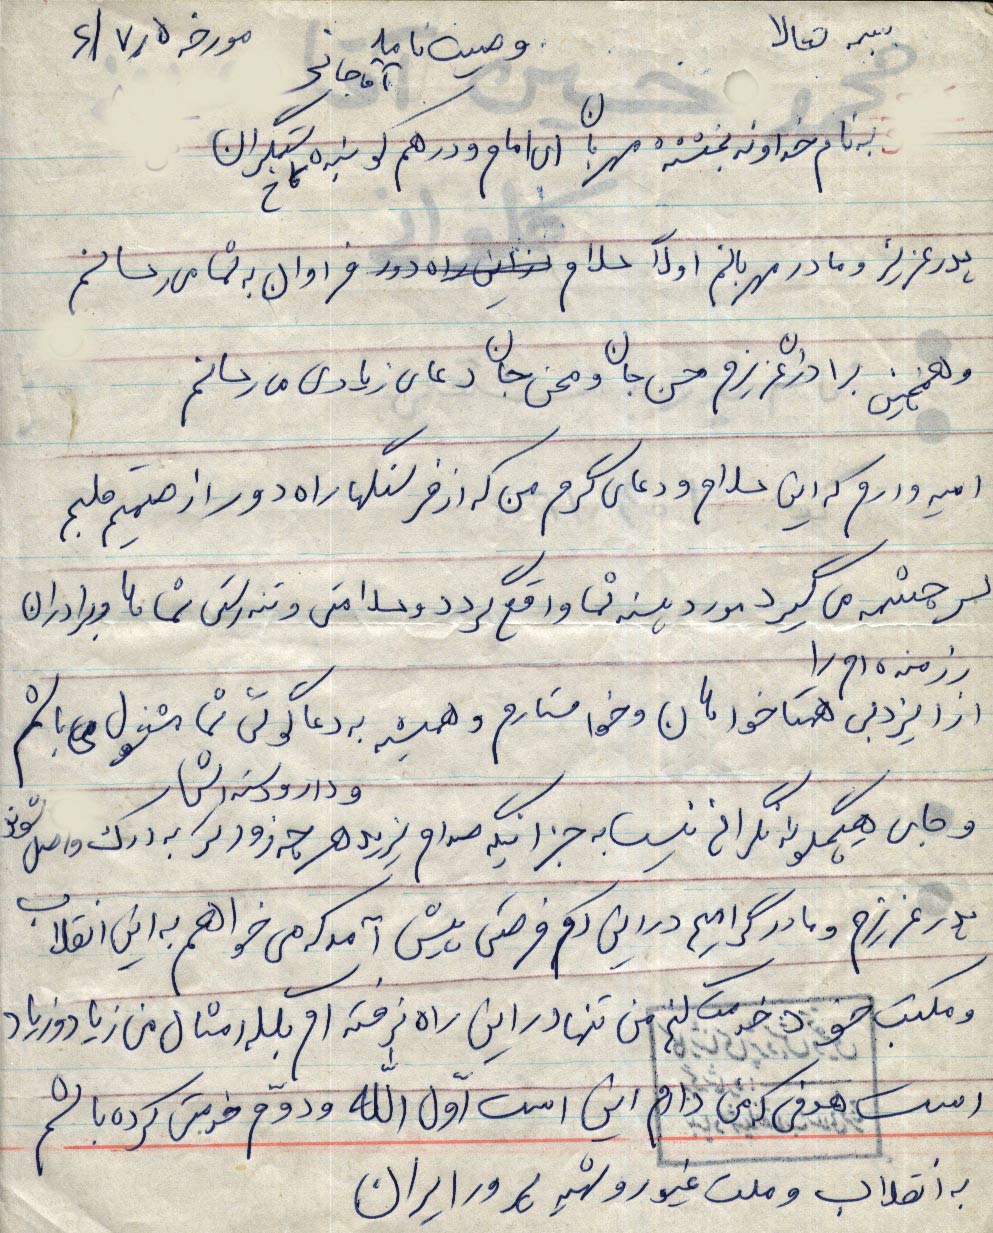 بسمه تعالا وصیت نامه مورخه ۶/۷/۵
آقاجانی
به نام خداوند بخشنده مهربان ای امام و درهم کوبنده کاخ ستمگران
پدر عزیز و مادر مهربانم اولاً سلام فراوان به شما می رسانم
و همچنین برادران عزیزم حسن جان و محسن جان دعای زیادی می رسانم
امیدوارم که این سلام و دعای گرم من که از فرسنگها راه دور از صمیم قلبم
سرچشمه می گیرد مورد پسند شما واقع گردد و سلامتی و تندرستی شماها و برادران
رزمنده ام را
از ایزد بی همتا خواهان و خواستارم و همیشه به دعاگوئی شما مشغول می باشم
و دار و دسته اش
و جای هیچگونه نگرانی نیست به جز اینکه صدام یزید هر چه زودتر به درک واصل شوند
پدر عزیزم و مادر گرامیم در این دم فرصتی پیش آمد که می خواهم به این انقلاب
و مکتب خود خدمت کنم من تنها در این راه نرفته ام بلکه امثال من زیاد و زیاد
است هدفی که من دارم این است اوّل الله و دوّم خدمتی کرده باشم
به انقلاب و ملت غیور و شهید پرور ایران